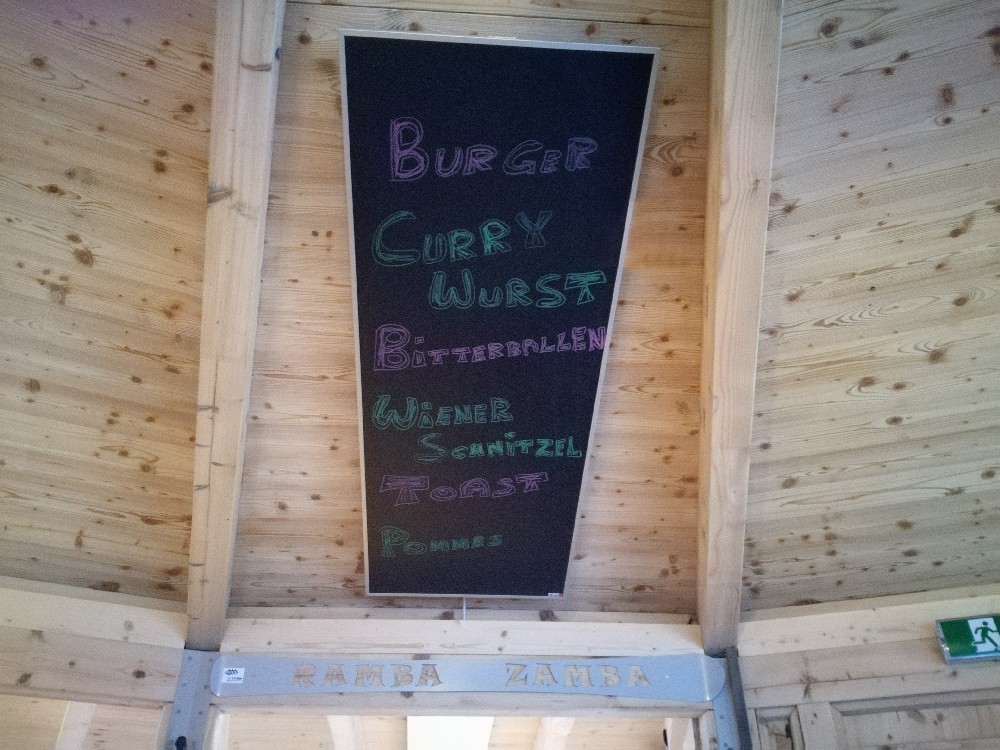 BURGER
CURRY
WURST
BITTERBALLEN
WIENER
SCHNITZEL
TOAST
POMMES
RAMBA ZAMBA